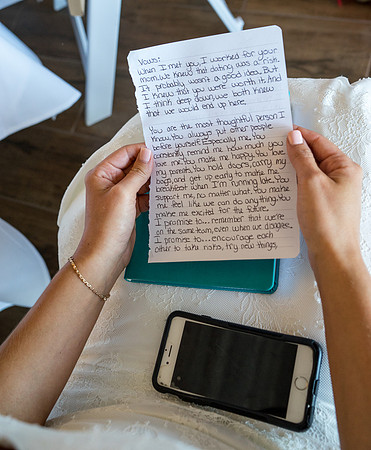 Vows:
When I met you, I worked for your
mom. We knew that dating was a risk.
It probably wasn't a good idea. But
I knew that you were worth it. And
I think deep down, we both knew
that we would end up here.
You are the most thoughtful person I
know. You always put other people
before yourself. Especially me. You
constantly remind me how much you
love me. You make me happy. You love
my parents. You hold doors, carry my
bags, and get up early to make me
breakfast when I'm running late. You
support me, no matter what. You make
me feel like we can do anything. You
make me excited for the future.
I promise to... remember that we're
on the same team, even when we disagree.
I promise to... encourage each
other to take risks, try new things,